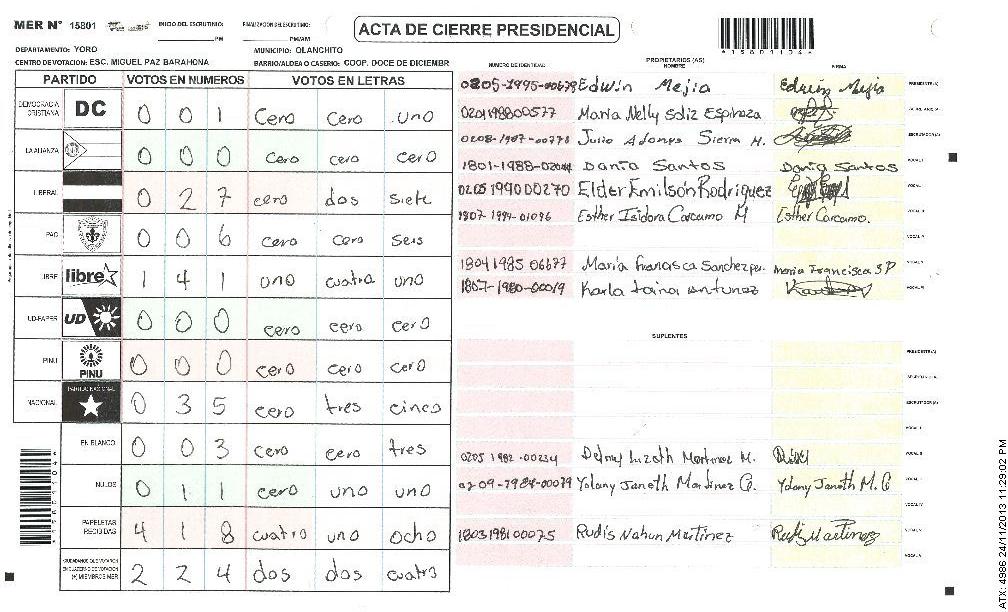 MER N° 15801 INICIO DEL ESCRUTINIO: PM FINALIZACION DEL ESCRUTINIO: PM/AM
ACTA DE CIERRE PRESIDENCIAL
DEPARTAMENTO: YORO MUNICIPIO: OLANCHITO
CENTRO DE VOTACION: ESC. MIGUEL PAZ BARAHONA BARRIO/ALDEA O CASERIO: COOP. DOCE DE DICIEMBR
PARTIDO VOTOS EN NUMEROS VOTOS EN LETRAS
DEMOCRACIA CRISTIANA DC 0 0 1 cero cero uno
LA ALIANZA 0 0 0 cero cero cero
LIBERAL 0 2 7 cero dos siete
PAC 0 0 6 cero cero seis
LIBRE libre 1 4 1 uno cuatro uno
UD-FAPER UD 0 0 0 cero cero cero
PINU PINU 0 0 0 cero cero cero
NACIONAL PARTIDO NACIONAL 0 3 5 cero tres cinco
EN BLANCO 0 0 3 cero cero tres
NULOS 0 1 1 cero uno uno
PAPELETAS RECIBIDAS 4 1 8 cuatro uno ocho
CIUDADANOS QUE VOTARON EN CUADERNO DE VOTACION (+) MIEMBROS MER 2 2 4 dos dos cuatro
PROPIETARIOS (AS)
NUMERO DE IDENTIDAD NOMBRE FIRMA
0805-1995-00679 Edwin Mejia Edwin Mejia PRESIDENTE(A)
0201198800577 Maria Nelly Soliz Espinoza SECRETARIO(A)
0208-1987-00778 Julio Adonys Sierra M. ESCRUTADOR(A)
1801-1988-02044 Dania Santos Dania Santos VOCAL I
0205199000270 Elder Emilson Rodriguez VOCAL
1807-1994-01096 Esther Isidora Carcamo M Esther Carcamo. VOCAL
VOCAL
1804 1985 06677 María Francisca Sanchez per. Maria Francisca S P VOCAL
1807-1980-00019 Karla Antunez VOCAL
SUPLENTES
PRESIDENTE(A)
SECRETARIO(A)
ESCRUTADOR(A)
VOCAL I
0205 1982-00234 Martinez M. VOCAL II
0209-1984-00079 Yolany Janeth Martinez G. Yolany Janeth M. G VOCAL
VOCAL IV
1803198100075 Rudis Nahun Martinez Rudis Martinez VOCAL V
VOCAL
ATX: 4986 24/11/2013 11:29:02 PM